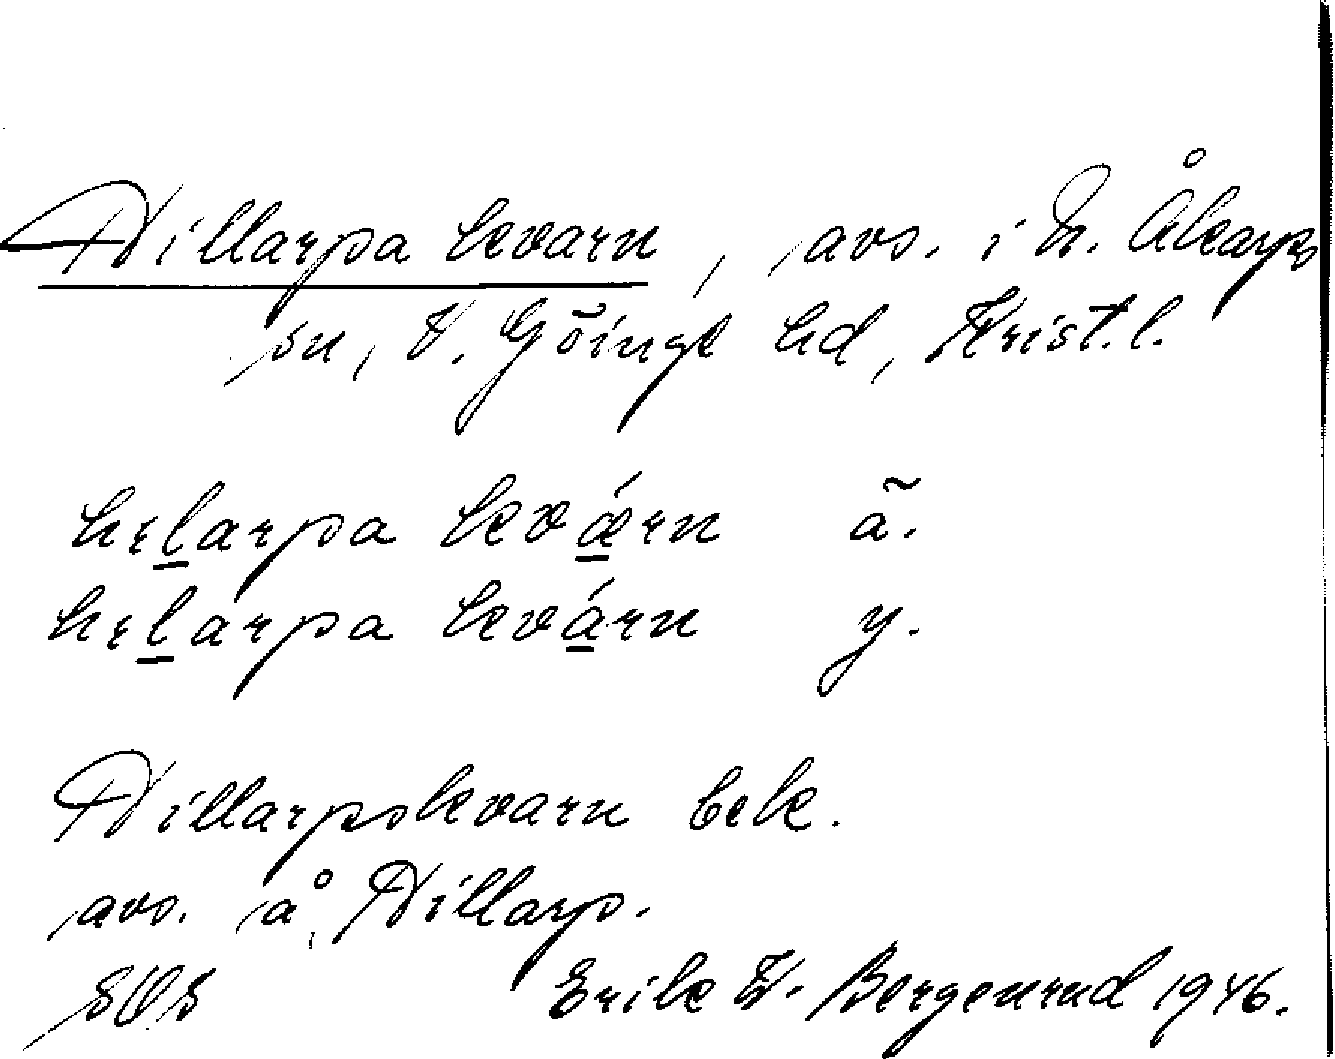 Hillarpa kvarn, avs. i N. Åkarps
sn, V. Göinge hd, Krist. l.
hɛlarpa kvǽrn ã.
hɛlarpa kvárn y.
Hillarpskvarn bek.
avs. å Hillarp.
SOS Erik W. Bergenrud 1946.